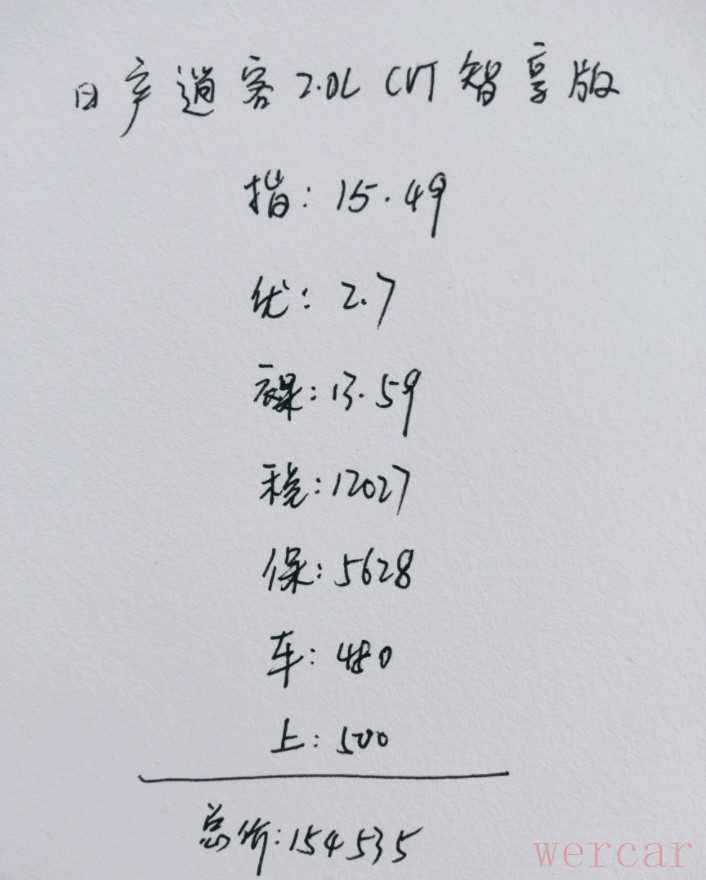 日产逍客2.0L CVT智享版
指:15.49
优:2.7
裸:13.59
税:12027
保:5628
车:480
上:500
总价:154535
wercar